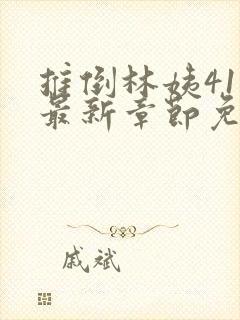 推倒林姨41
最新章节免
戚斌